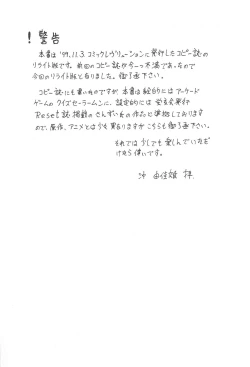 ！警告
本書は'99.11.3.コミックレヴォリューションに発行したコピー誌の
リライト版です。前回のコピー誌が今一つ不満であったので
今回のリライト版と有りました。御了承下さい。
コピー誌にも書いたのですが本書は絵的にはアーケード
ゲームのクイズセーラームーンに、設定的には
Reset誌掲載の作品に準拠しております
ので、原作、アニメとは少々異なりますがこちらも御了承下さい。
それでは少しでも楽しんでいただ
けたら幸いです。
拝